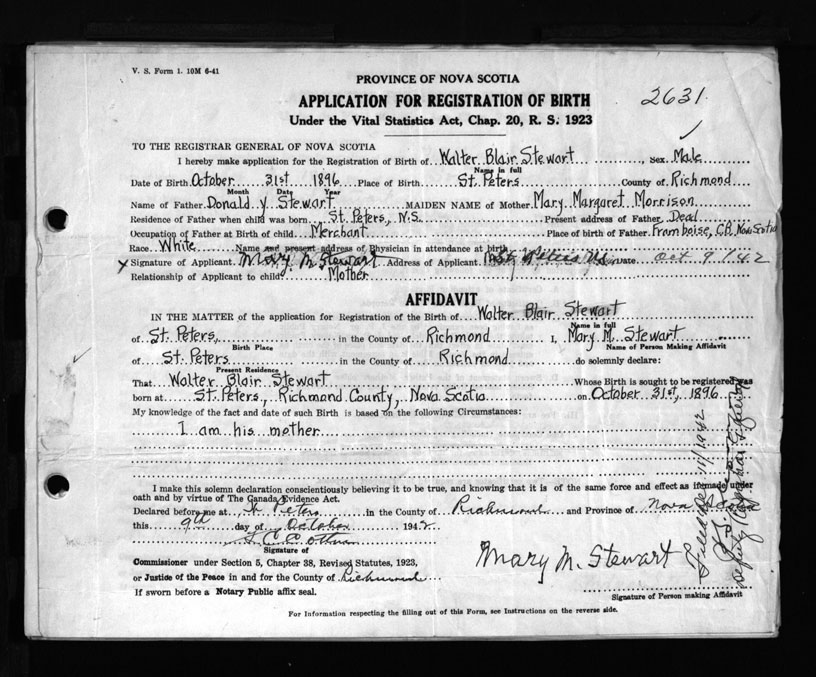 V. S. Form 1. 10M 6-41
PROVINCE OF NOVA SCOTIA
APPLICATION FOR REGISTRATION OF BIRTH
2631
Under the Vital Statistics Act, Chap. 20, R. S. 1923
TO THE REGISTRAR GENERAL OF NOVA SCOTIA
I hereby make application for the Registration of Birth of Walter Blair Stewart, sex Male
Name in full
Date of Birth October 31st 1896 Place of Birth St. Peters County of Richmond
Month Date Year
Name of Father Donald Y Stewart MAIDEN NAME of Mother Mary Margaret Morrison
Residence of Father when child was born St. Peters, N.S. Present address of Father Dead
Occupation of Father at Birth of child Merchant Place of birth of Father Framboise, C.B, Nova Scotia
Race White Name and present address of Physician in attendance at birth
X Signature of Applicant Mary M Stewart Address of Applicant St Peters NS Date Oct 9/42
Relationship of Applicant to child Mother
AFFIDAVIT
IN THE MATTER of the application for Registration of the Birth of Walter Blair Stewart
Name in full
of St. Peters, in the County of Richmond I, Mary M. Stewart
Birth Place Name of Person Making Affidavit
of St. Peters in the County of Richmond do solemnly declare:
Present Residence
That Walter Blair Stewart Whose Birth is sought to be registered was
born at St. Peters, Richmond County, Nova Scotia on October 31st, 1896
My knowledge of the fact and date of such Birth is based on the following Circumstances:
I am his mother
I make this solemn declaration conscientiously believing it to be true, and knowing that it is of the same force and effect as if made under
oath and by virtue of The Canada Evidence Act.
Declared before me at St Peters in the County of Richmond and Province of Nova Scotia
this 9th day of October 1942
Signature of
Mary M. Stewart
Commissioner under Section 5, Chapter 38, Revised Statutes, 1923,
or Justice of the Peace in and for the County of Richmond
If sworn before a Notary Public affix seal.
Signature of Person making Affidavit
For Information respecting the filling out of this Form, see Instructions on the reverse side.
Filed Dec 11/1942
Deputy Registrar General